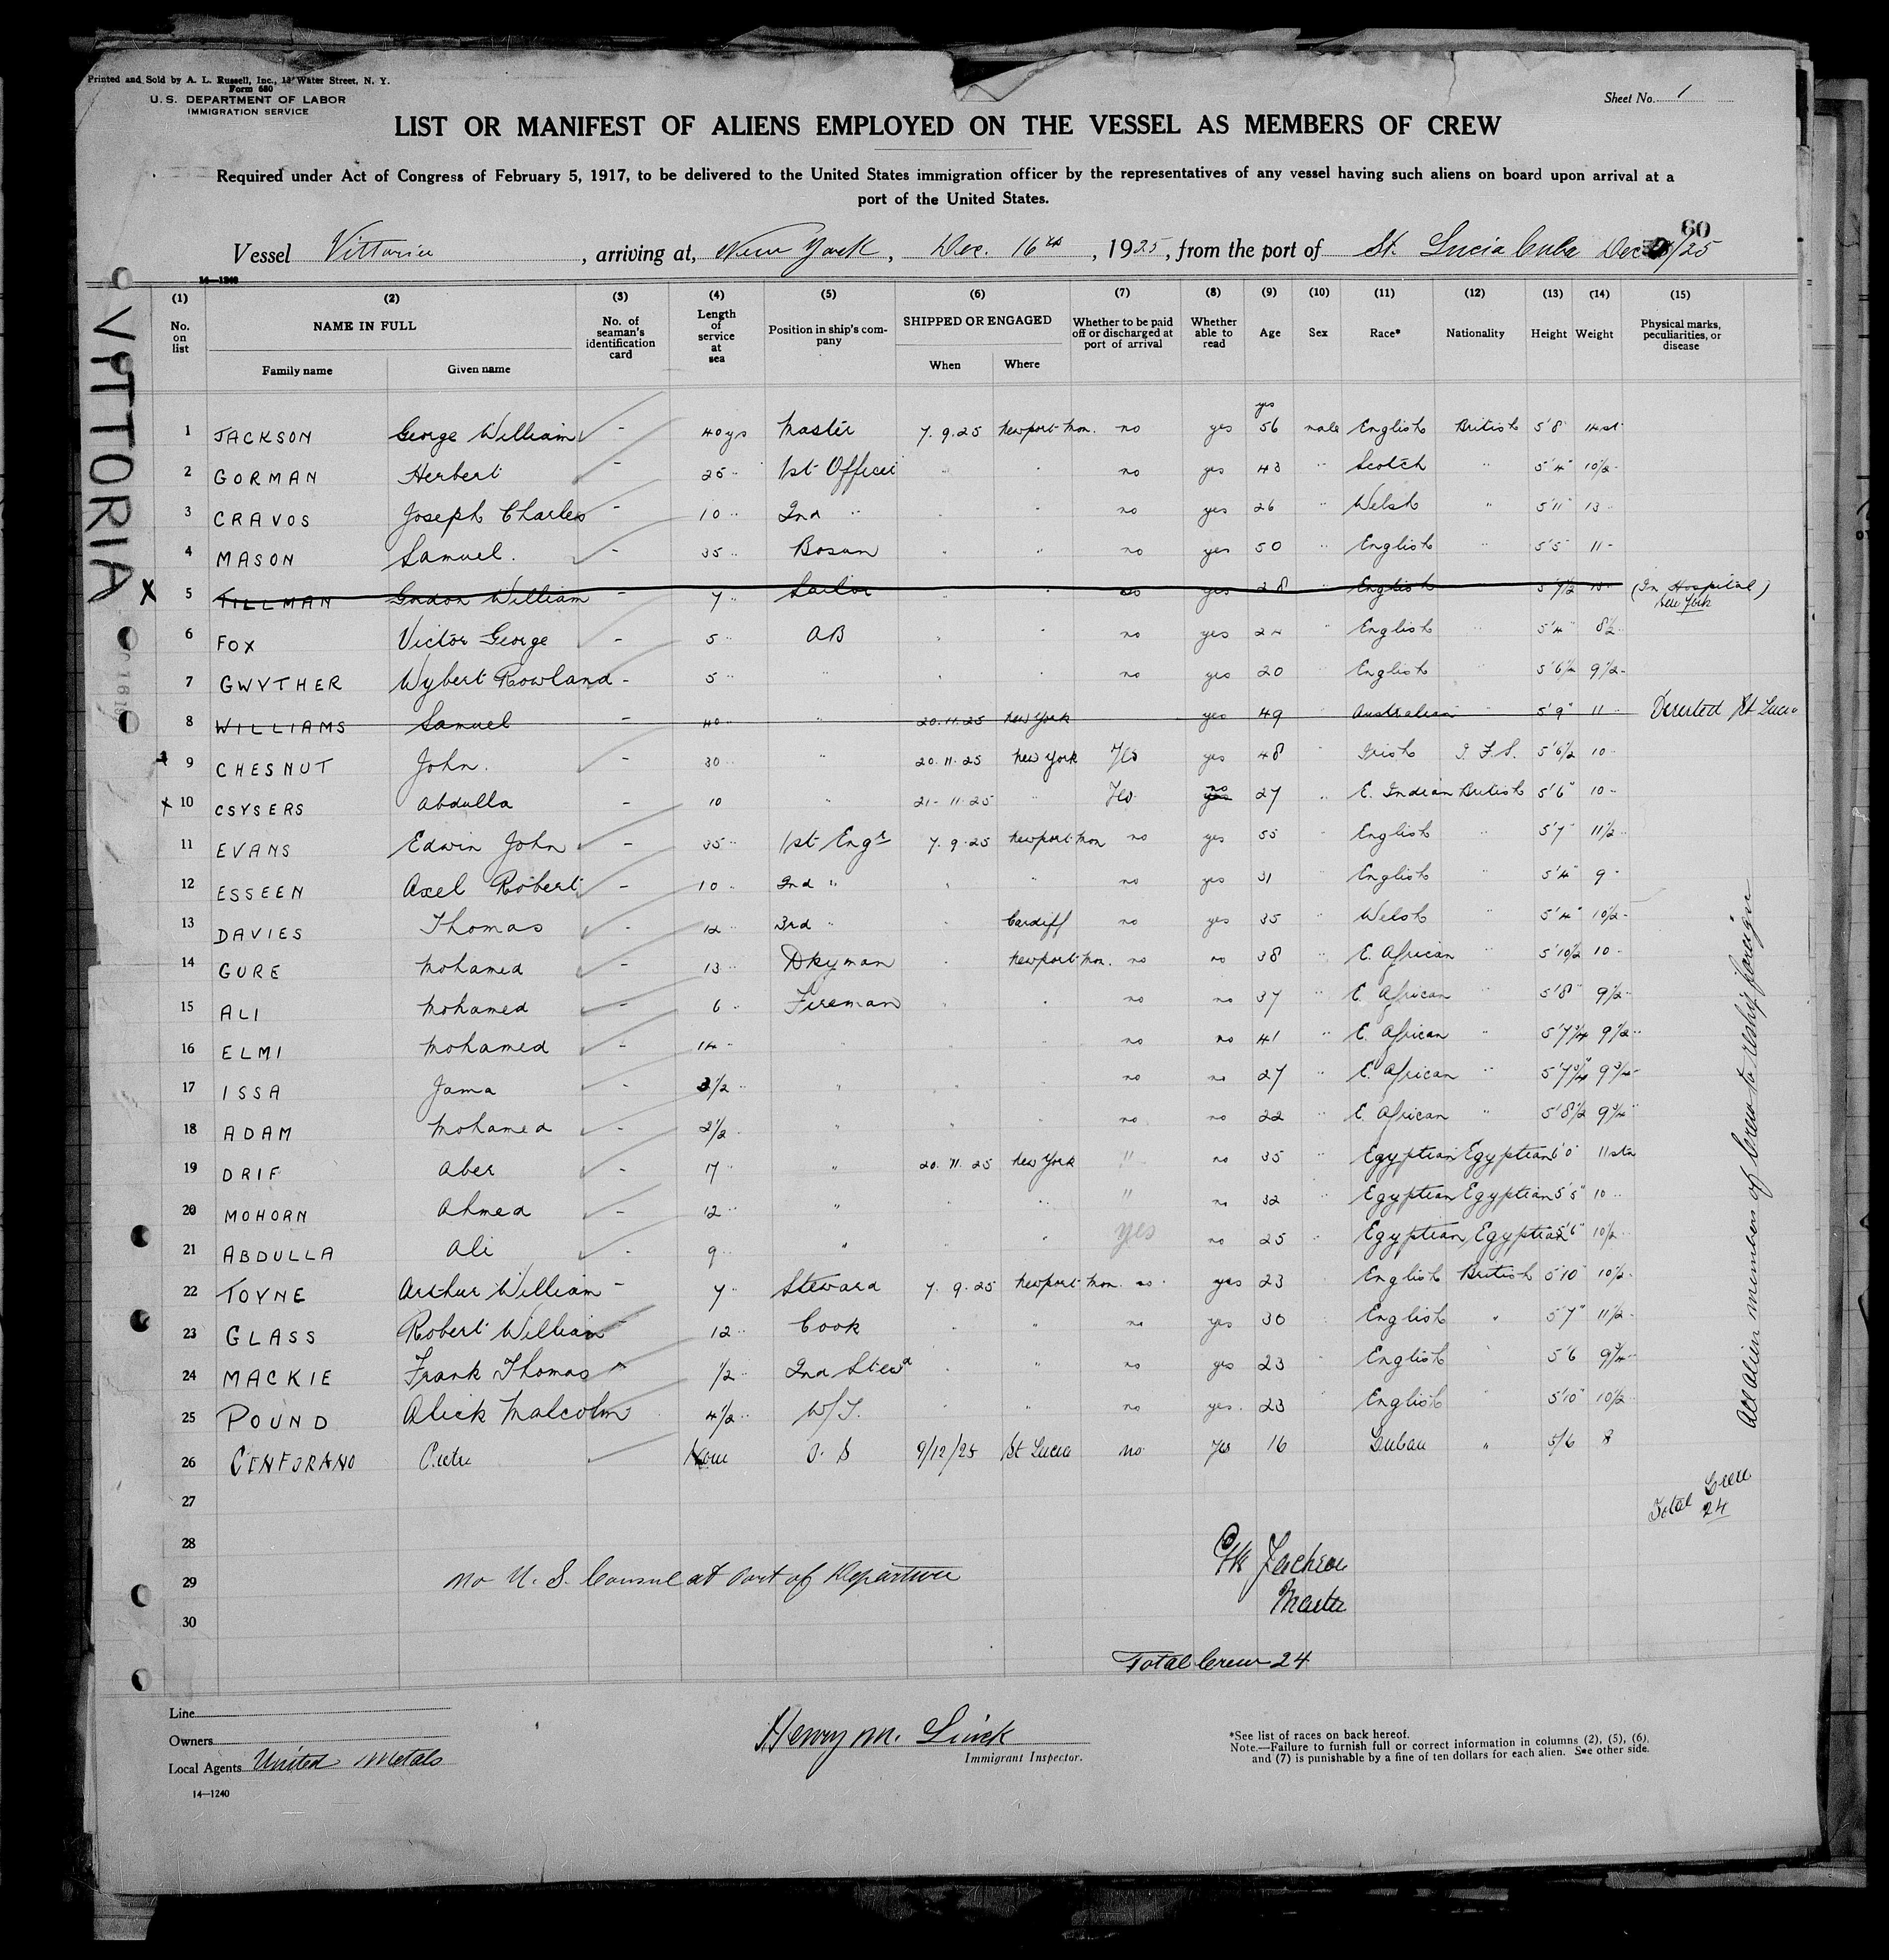 Printed and Sold by A. L. Russell, Inc., 13 Water Street, N. Y.
Form 680
U. S. DEPARTMENT OF LABOR
IMMIGRATION SERVICE
Sheet No. 1
LIST OR MANIFEST OF ALIENS EMPLOYED ON THE VESSEL AS MEMBERS OF CREW
Required under Act of Congress of February 5, 1917, to be delivered to the United States immigration officer by the representatives of any vessel having such aliens on board upon arrival at a
port of the United States.
60
Vessel Vittoria, arriving at, New York, Dec. 16th, 1925, from the port of St. Lucia Cuba Dec /25
14—1240
VITTORIA
(1) (2) (3) (4) (5) (6) (7) (8) (9) (10) (11) (12) (13) (14) (15)
No. on list NAME IN FULL Family name Given name No. of seaman's identification card Length of service at sea Position in ship's company SHIPPED OR ENGAGED When Where Whether to be paid off or discharged at port of arrival Whether able to read Age Sex Race* Nationality Height Weight Physical marks, peculiarities, or disease
yrs
1 JACKSON George William - 40 yrs Master 7.9.25 Newport Mon. no yes 56 male English British 5'8" 14 st
2 GORMAN Herbert - 25 " 1st Officer " " no yes 43 " Scotch " 5'4" 10½ "
3 CRAVOS Joseph Charles - 10 " 2nd " " " no yes 26 " Welsh " 5'11" 13 "
4 MASON Samuel. - 35 " Bosun " " no yes 50 " English " 5'5" 11 "
X 5 TILLMAN Gordon William - 7 " Sailor " " no yes 28 " English 5'7½ (In Hospital) New York
6 FOX Victor George - 5 " AB " " no yes 24 " English " 5'4" 8½ "
7 GWYTHER Wybert Rowland - 5 " " " " no yes 20 English " 5'6½ 9½ "
8 WILLIAMS Samuel - 40 " " 20.11.25 New York yes 49 Australian 5'9" 11 " Deserted St Lucia
9 CHESNUT John. - 30 " 20.11.25 New York Yes yes 48 " Irish I.F.S. 5'6½ 10 "
x 10 CSYSERS Abdulla - 10 " 21-11.25 " Yes no yes 27 " E. Indian British 5'6" 10 "
11 EVANS Edwin John - 35 " 1st Engr 7.9.25 Newport Mon no yes 55 " English " 5'7" 11½ "
12 ESSEEN Axel Robert - 10 " 2nd " " " no yes 31 English " 5'4" 9 "
13 DAVIES Thomas - 12 " 3rd " " Cardiff no yes 35 " Welsh " 5'4" 10½ "
14 GURE Mohamed - 13 " Dkyman " Newport Mon. no no 38 " E. African 5'10½ 10 "
15 ALI Mohamed - 6 " Fireman " " no no 37 " E. African " 5'8" 9½ "
16 ELMI Mohamed - 14 " " " " no no 41 " E. African " 5'7¾ 9½ "
17 ISSA Jama - 3½ " " " " no no 27 " E. African " 5'7¾ 9¾ "
18 ADAM Mohamed - 2½ " " " " no no 22 " E. African " 5'8½ 9¾ "
19 DRIF Aber - 17 " " 20.11.25 New York " no 35 " Egyptian Egyptian 6'0" 11 sts
20 MOHORN Ahmed - 12 " " " " " no 32 " Egyptian Egyptian 5'5" 10 "
21 ABDULLA Ali - 9 " " " " yes no 25 " Egyptian Egyptian 5'6" 10½ "
22 TOYNE Arthur William - 7 " Steward 7.9.25 Newport Mon. no yes 23 English British 5'10" 10½ "
23 GLASS Robert William - 12 " Cook " " no yes 30 " English " 5'7" 11½ "
24 MACKIE Frank Thomas - ½ " 2nd Stewd " " no yes 23 English 5'6 9¾ "
25 POUND Alick Malcolm 4½ " W/T. " " no yes. 23 English " 5'10" 10½ "
26 CENFORANO None O.S 9/12/25 St Lucia no yes 16 Cuban " 5/6 8
27
28
29
30
All alien members of Crew to reship foreign
Total Crew
24
No U. S. Consul at Port of Departure
GW Jackson
Master
Total Crew 24
Line
Owners
Local Agents United Metals
14—1240
Henry M.
Immigrant Inspector.
*See list of races on back hereof.
Note.—Failure to furnish full or correct information in columns (2), (5), (6),
and (7) is punishable by a fine of ten dollars for each alien. See other side.